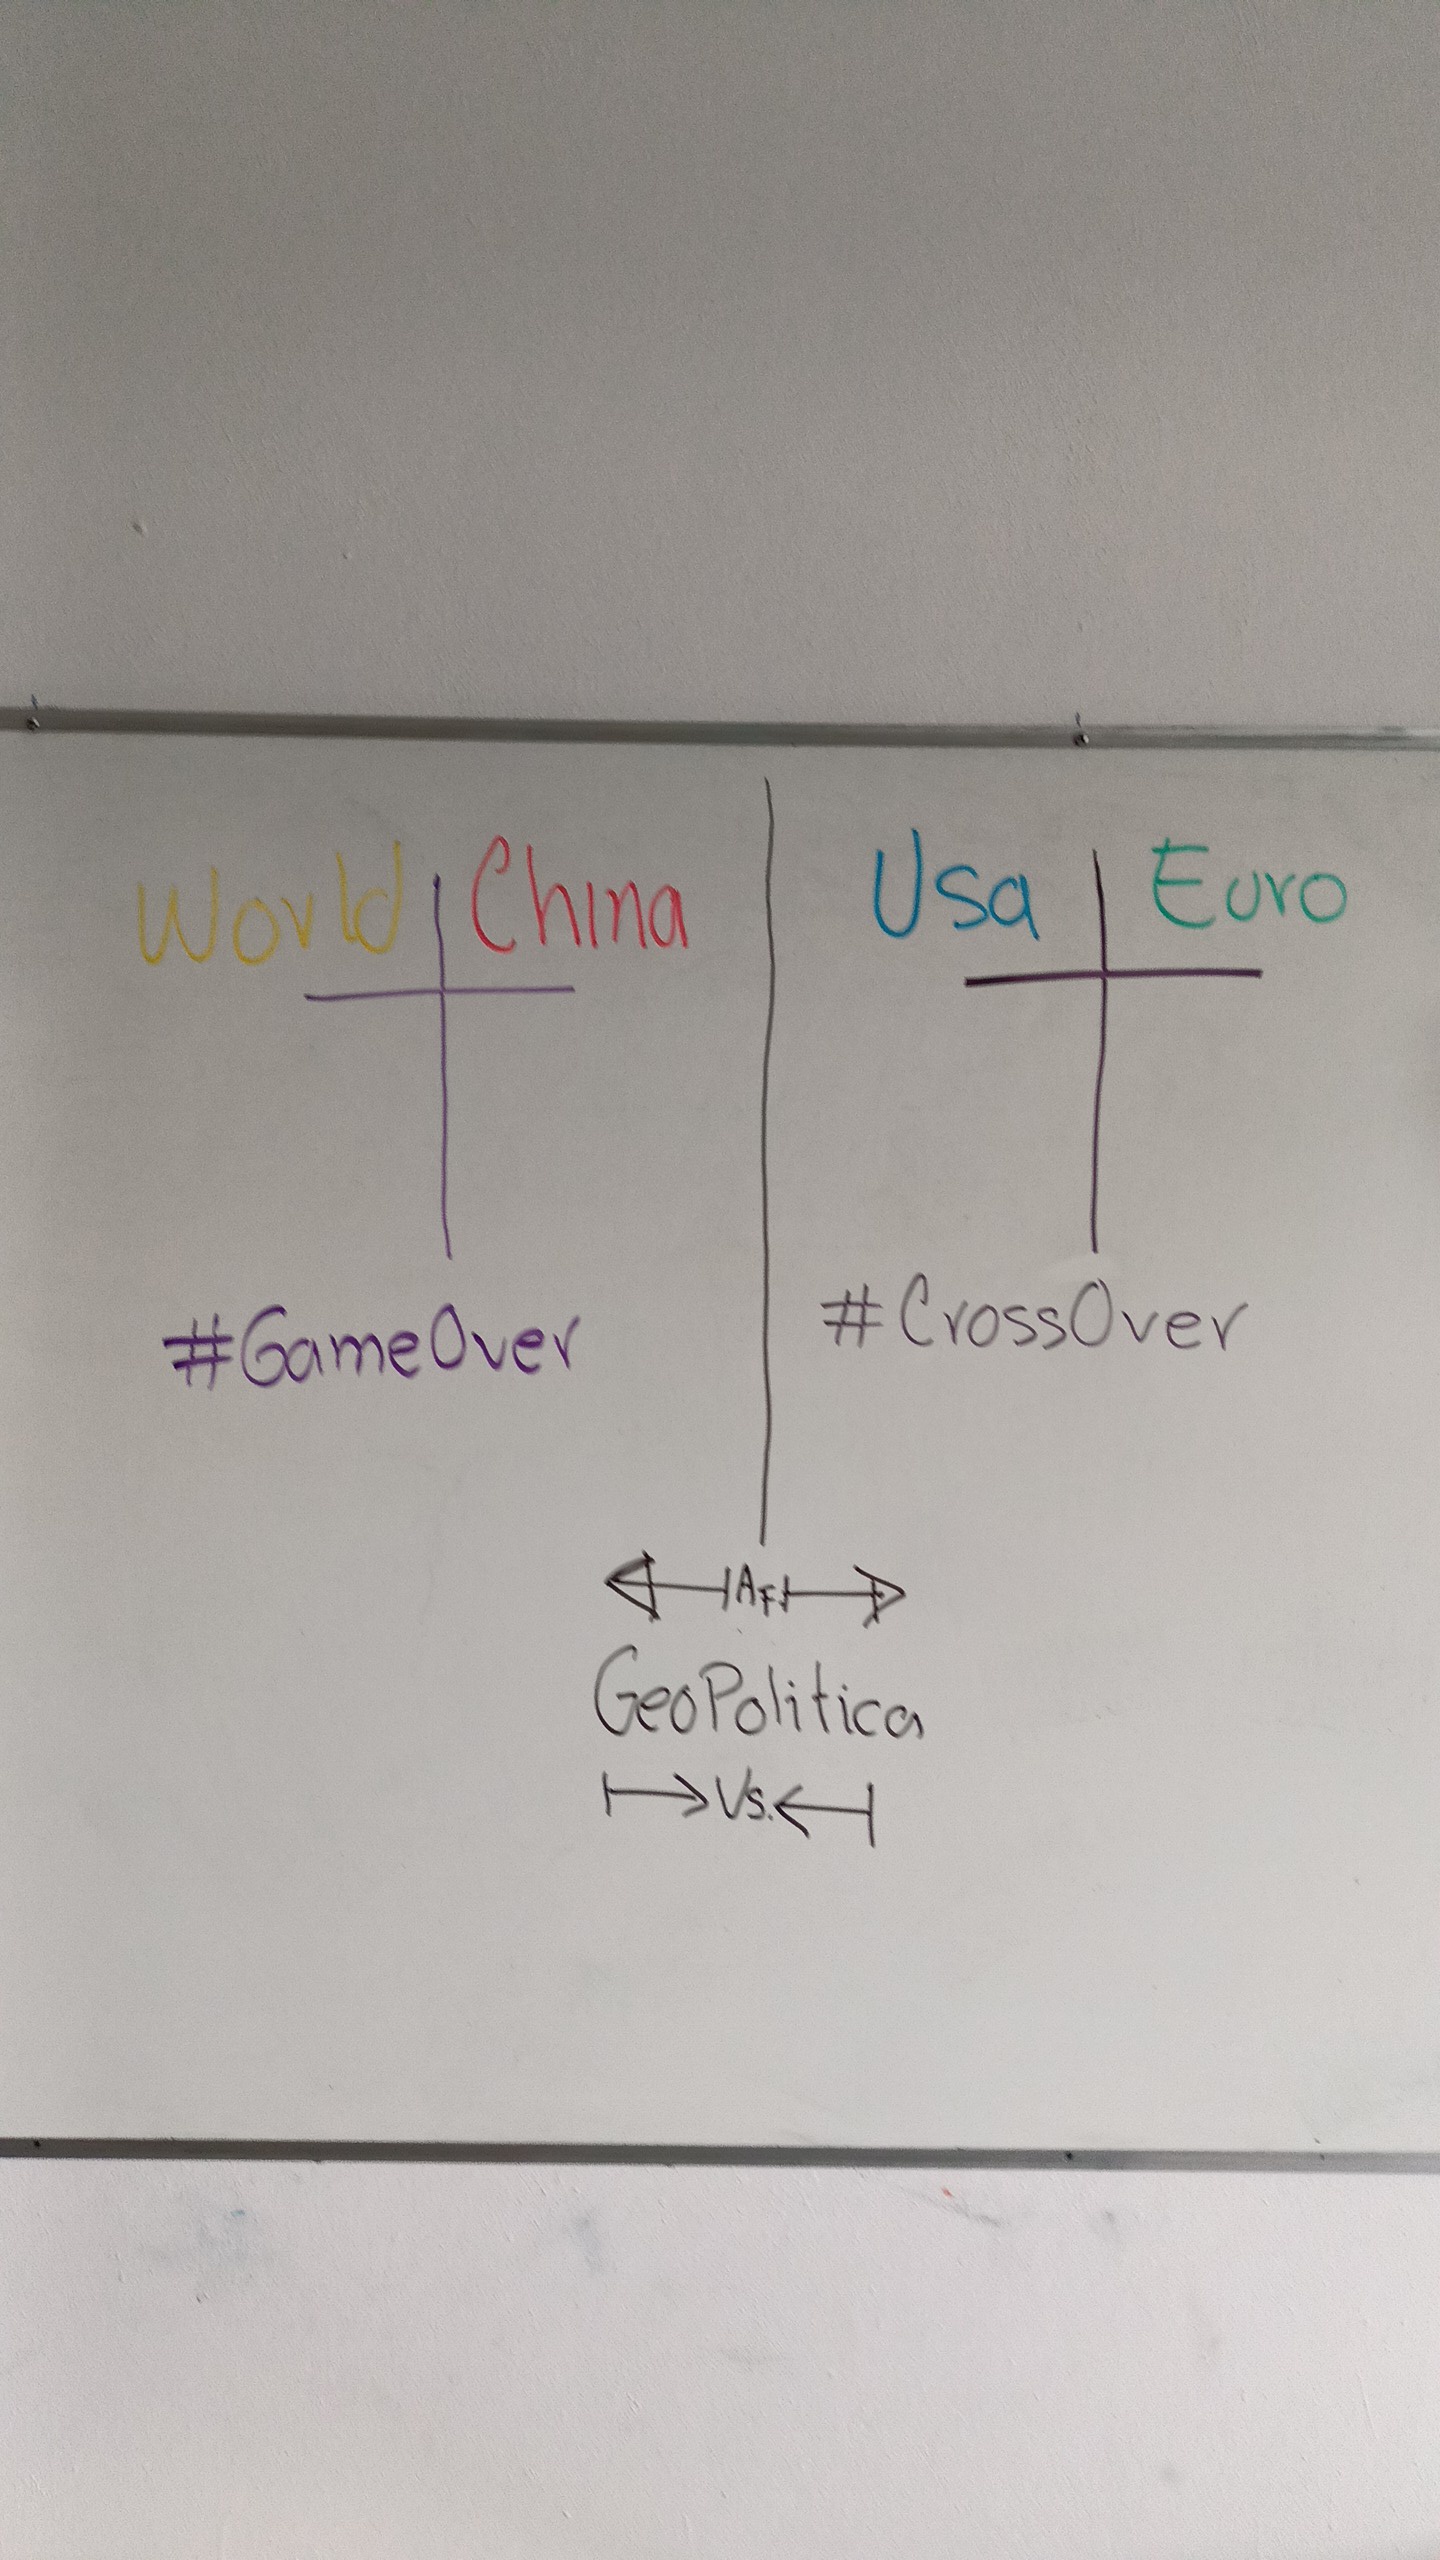 World China
#GameOver
Usa Euro
#CrossOver
AF
GeoPolitica
Vs.